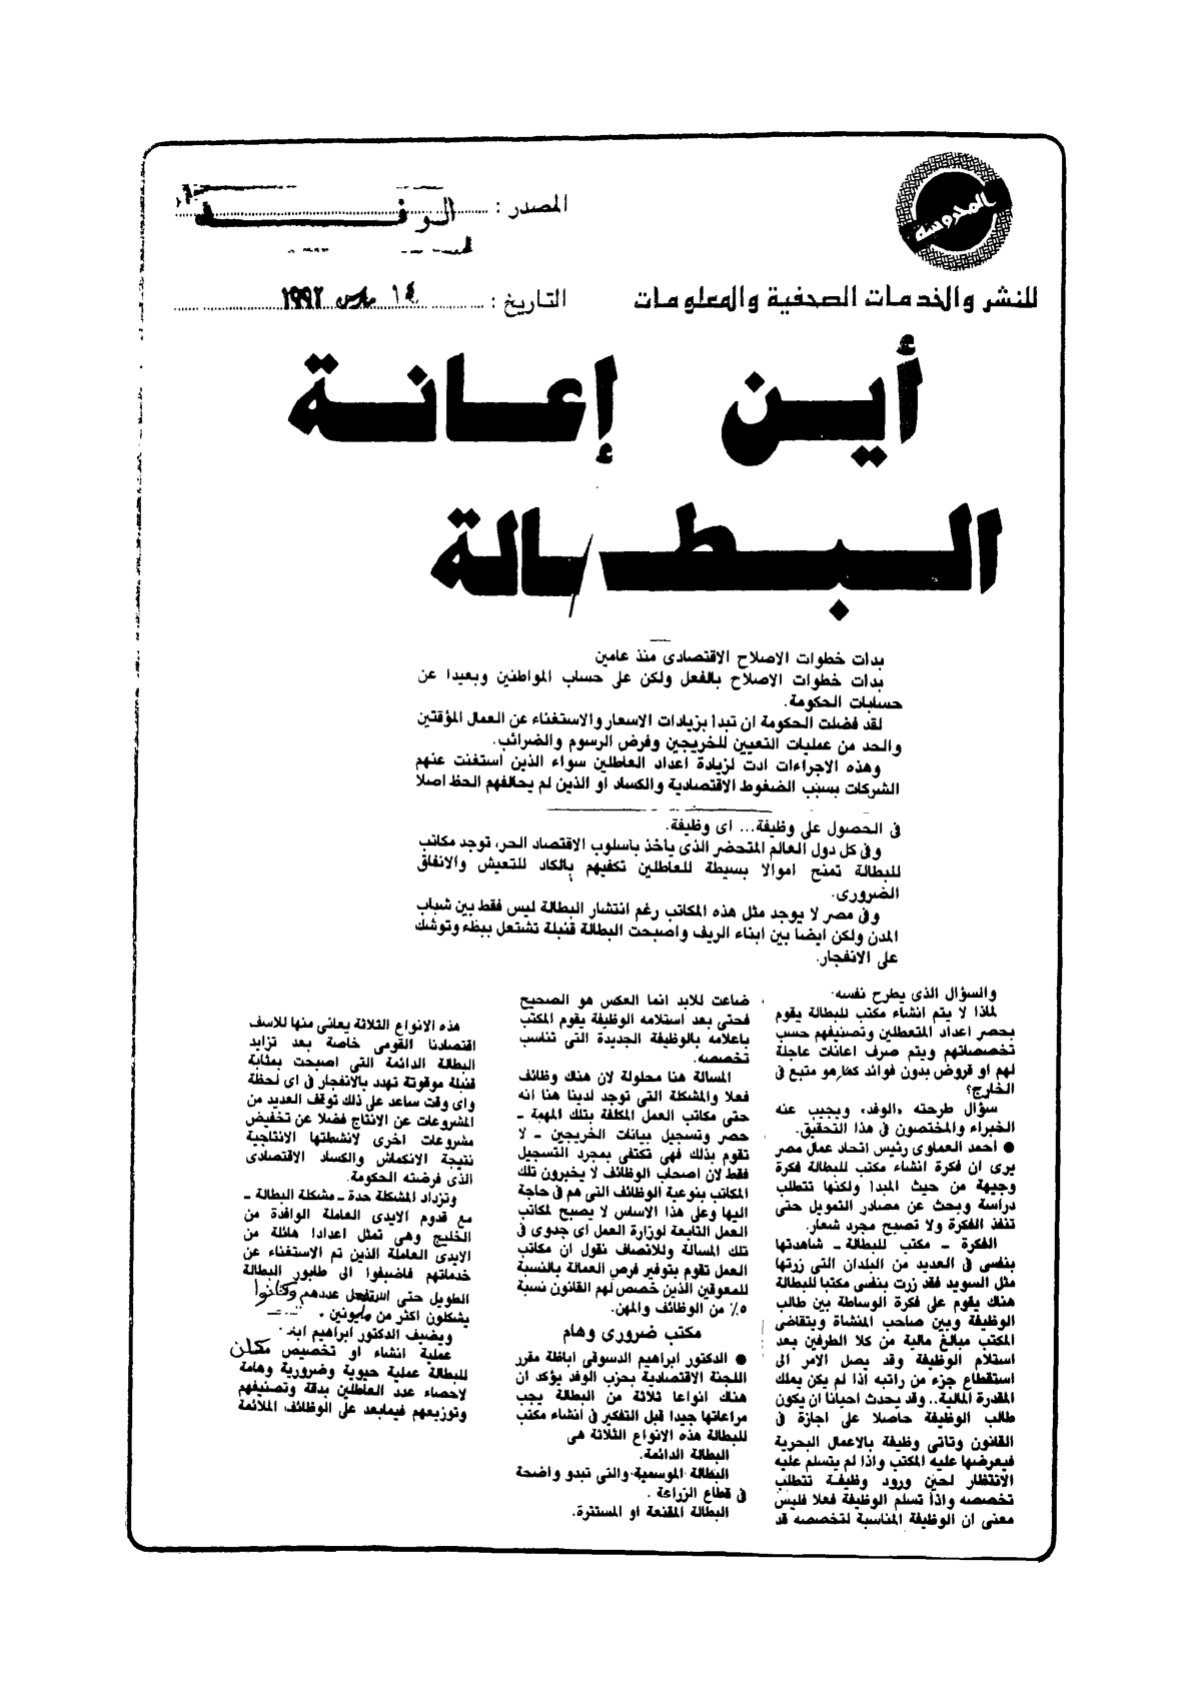 المحروسة
المصدر : الوفد
للنشر والخدمات الصحفية والمعلومات
التاريخ : ١٤ مارس ١٩٩٢
أين إعانة
البطالة
بدات خطوات الاصلاح الاقتصادى منذ عامين
بدات خطوات الاصلاح بالفعل ولكن على حساب المواطنين وبعيدا عن
حسابات الحكومة.
لقد فضلت الحكومة ان تبدا بزيادات الاسعار والاستغناء عن العمال المؤقتين
والحد من عمليات التعيين للخريجين وفرض الرسوم والضرائب.
وهذه الاجراءات ادت لزيادة اعداد العاطلين سواء الذين استغنت عنهم
الشركات بسبب الضغوط الاقتصادية والكساد او الذين لم يحالفهم الحظ اصلا
فى الحصول على وظيفة... اى وظيفة.
وفى كل دول العالم المتحضر الذى ياخذ باسلوب الاقتصاد الحر، توجد مكاتب
للبطالة تمنح اموالا بسيطة للعاطلين تكفيهم بالكاد للتعيش والانفاق
الضرورى.
وفى مصر لا يوجد مثل هذه المكاتب رغم انتشار البطالة ليس فقط بين شباب
المدن ولكن ايضا بين ابناء الريف واصبحت البطالة قنبلة تشتعل ببطء وتوشك
على الانفجار.
والسؤال الذى يطرح نفسه.
لماذا لا يتم انشاء مكتب للبطالة يقوم
بحصر اعداد المتعطلين وتصنيفهم حسب
تخصصاتهم ويتم صرف اعانات عاجلة
لهم او قروض بدون فوائد كما هو متبع فى
الخارج؟
سؤال طرحته «الوفد» ويجيب عنه
الخبراء والمختصون فى هذا التحقيق.
● احمد العماوى رئيس اتحاد عمال مصر
يرى ان فكرة انشاء مكتب للبطالة فكرة
وجيهة من حيث المبدا ولكنها تتطلب
دراسة وبحث عن مصادر التمويل حتى
تنفذ الفكرة ولا تصبح مجرد شعار.
الفكرة ـ مكتب للبطالة ـ شاهدتها
بنفسى فى العديد من البلدان التى زرتها
مثل السويد فقد زرت بنفسى مكتبا للبطالة
هناك يقوم على فكرة الوساطة بين طالب
الوظيفة وبين صاحب المنشاة ويتقاضى
المكتب مبالغ مالية من كلا الطرفين بعد
استلام الوظيفة وقد يصل الامر الى
استقطاع جزء من راتبه اذا لم يكن يملك
المقدرة المالية.. وقد يحدث احيانا ان يكون
طالب الوظيفة حاصلا على اجازة فى
القانون وتاتى وظيفة بالاعمال البحرية
فيعرضها عليه المكتب واذا لم يتسلم عليه
الانتظار لحين ورود وظيفة تتطلب
تخصصه واذا تسلم الوظيفة فعلا فليس
معنى ان الوظيفة المناسبة لتخصصه قد
ضاعت للابد انما العكس هو الصحيح
فحتى بعد استلامه الوظيفة يقوم المكتب
باعلامه بالوظيفة الجديدة التى تناسب
تخصصه.
المسالة هنا محلولة لان هناك وظائف
فعلا والمشكلة التى توجد لدينا هنا انه
حتى مكاتب العمل المكلفة بتلك المهمة ـ
حصر وتسجيل بيانات الخريجين ـ لا
تقوم بذلك فهى تكتفى بمجرد التسجيل
فقط لان اصحاب الوظائف لا يخبرون تلك
المكاتب بنوعية الوظائف التى هم فى حاجة
اليها وعلى هذا الاساس لا يصبح لمكاتب
العمل التابعة لوزارة العمل اى جدوى فى
تلك المسالة وللانصاف نقول ان مكاتب
العمل تقوم بتوفير فرص العمالة بالنسبة
للمعوقين الذين خصص لهم القانون نسبة
٥٪ من الوظائف والمهن.
مكتب ضرورى وهام
● الدكتور ابراهيم الدسوقى اباظة مقرر
اللجنة الاقتصادية بحزب الوفد يؤكد ان
هناك انواعا ثلاثة من البطالة يجب
مراعاتها جيدا قبل التفكير فى انشاء مكتب
للبطالة هذه الانواع الثلاثة هى
البطالة الدائمة.
البطالة الموسمية والتى تبدو واضحة
فى قطاع الزراعة .
البطالة المقنعة او المستترة.
هذه الانواع الثلاثة يعانى منها للاسف
اقتصادنا القومى خاصة بعد تزايد
البطالة الدائمة التى اصبحت بمثابة
قنبلة موقوتة تهدد بالانفجار فى اى لحظة
واى وقت ساعد على ذلك توقف العديد من
المشروعات عن الانتاج فضلا عن تخفيض
مشروعات اخرى لانشطتها الانتاجية
نتيجة الانكماش والكساد الاقتصادى
الذى فرضته الحكومة.
وتزداد المشكلة حدة ـ مشكلة البطالة ـ
مع قدوم الايدى العاملة الوافدة من
الخليج وهى تمثل اعدادا هائلة من
الايدى العاملة الذين تم الاستغناء عن
خدماتهم فاضيفوا الى طابور البطالة
الطويل حتى استفحل عددهم وكانوا
يشكلون اكثر من مليونين .
ويضيف الدكتور ابراهيم
عملية انشاء او تخصيص مكان
للبطالة عملية حيوية وضرورية وهامة
لاحصاء عدد العاطلين بدقة وتصنيفهم
وتوزيعهم فيمابعد على الوظائف الملائمة